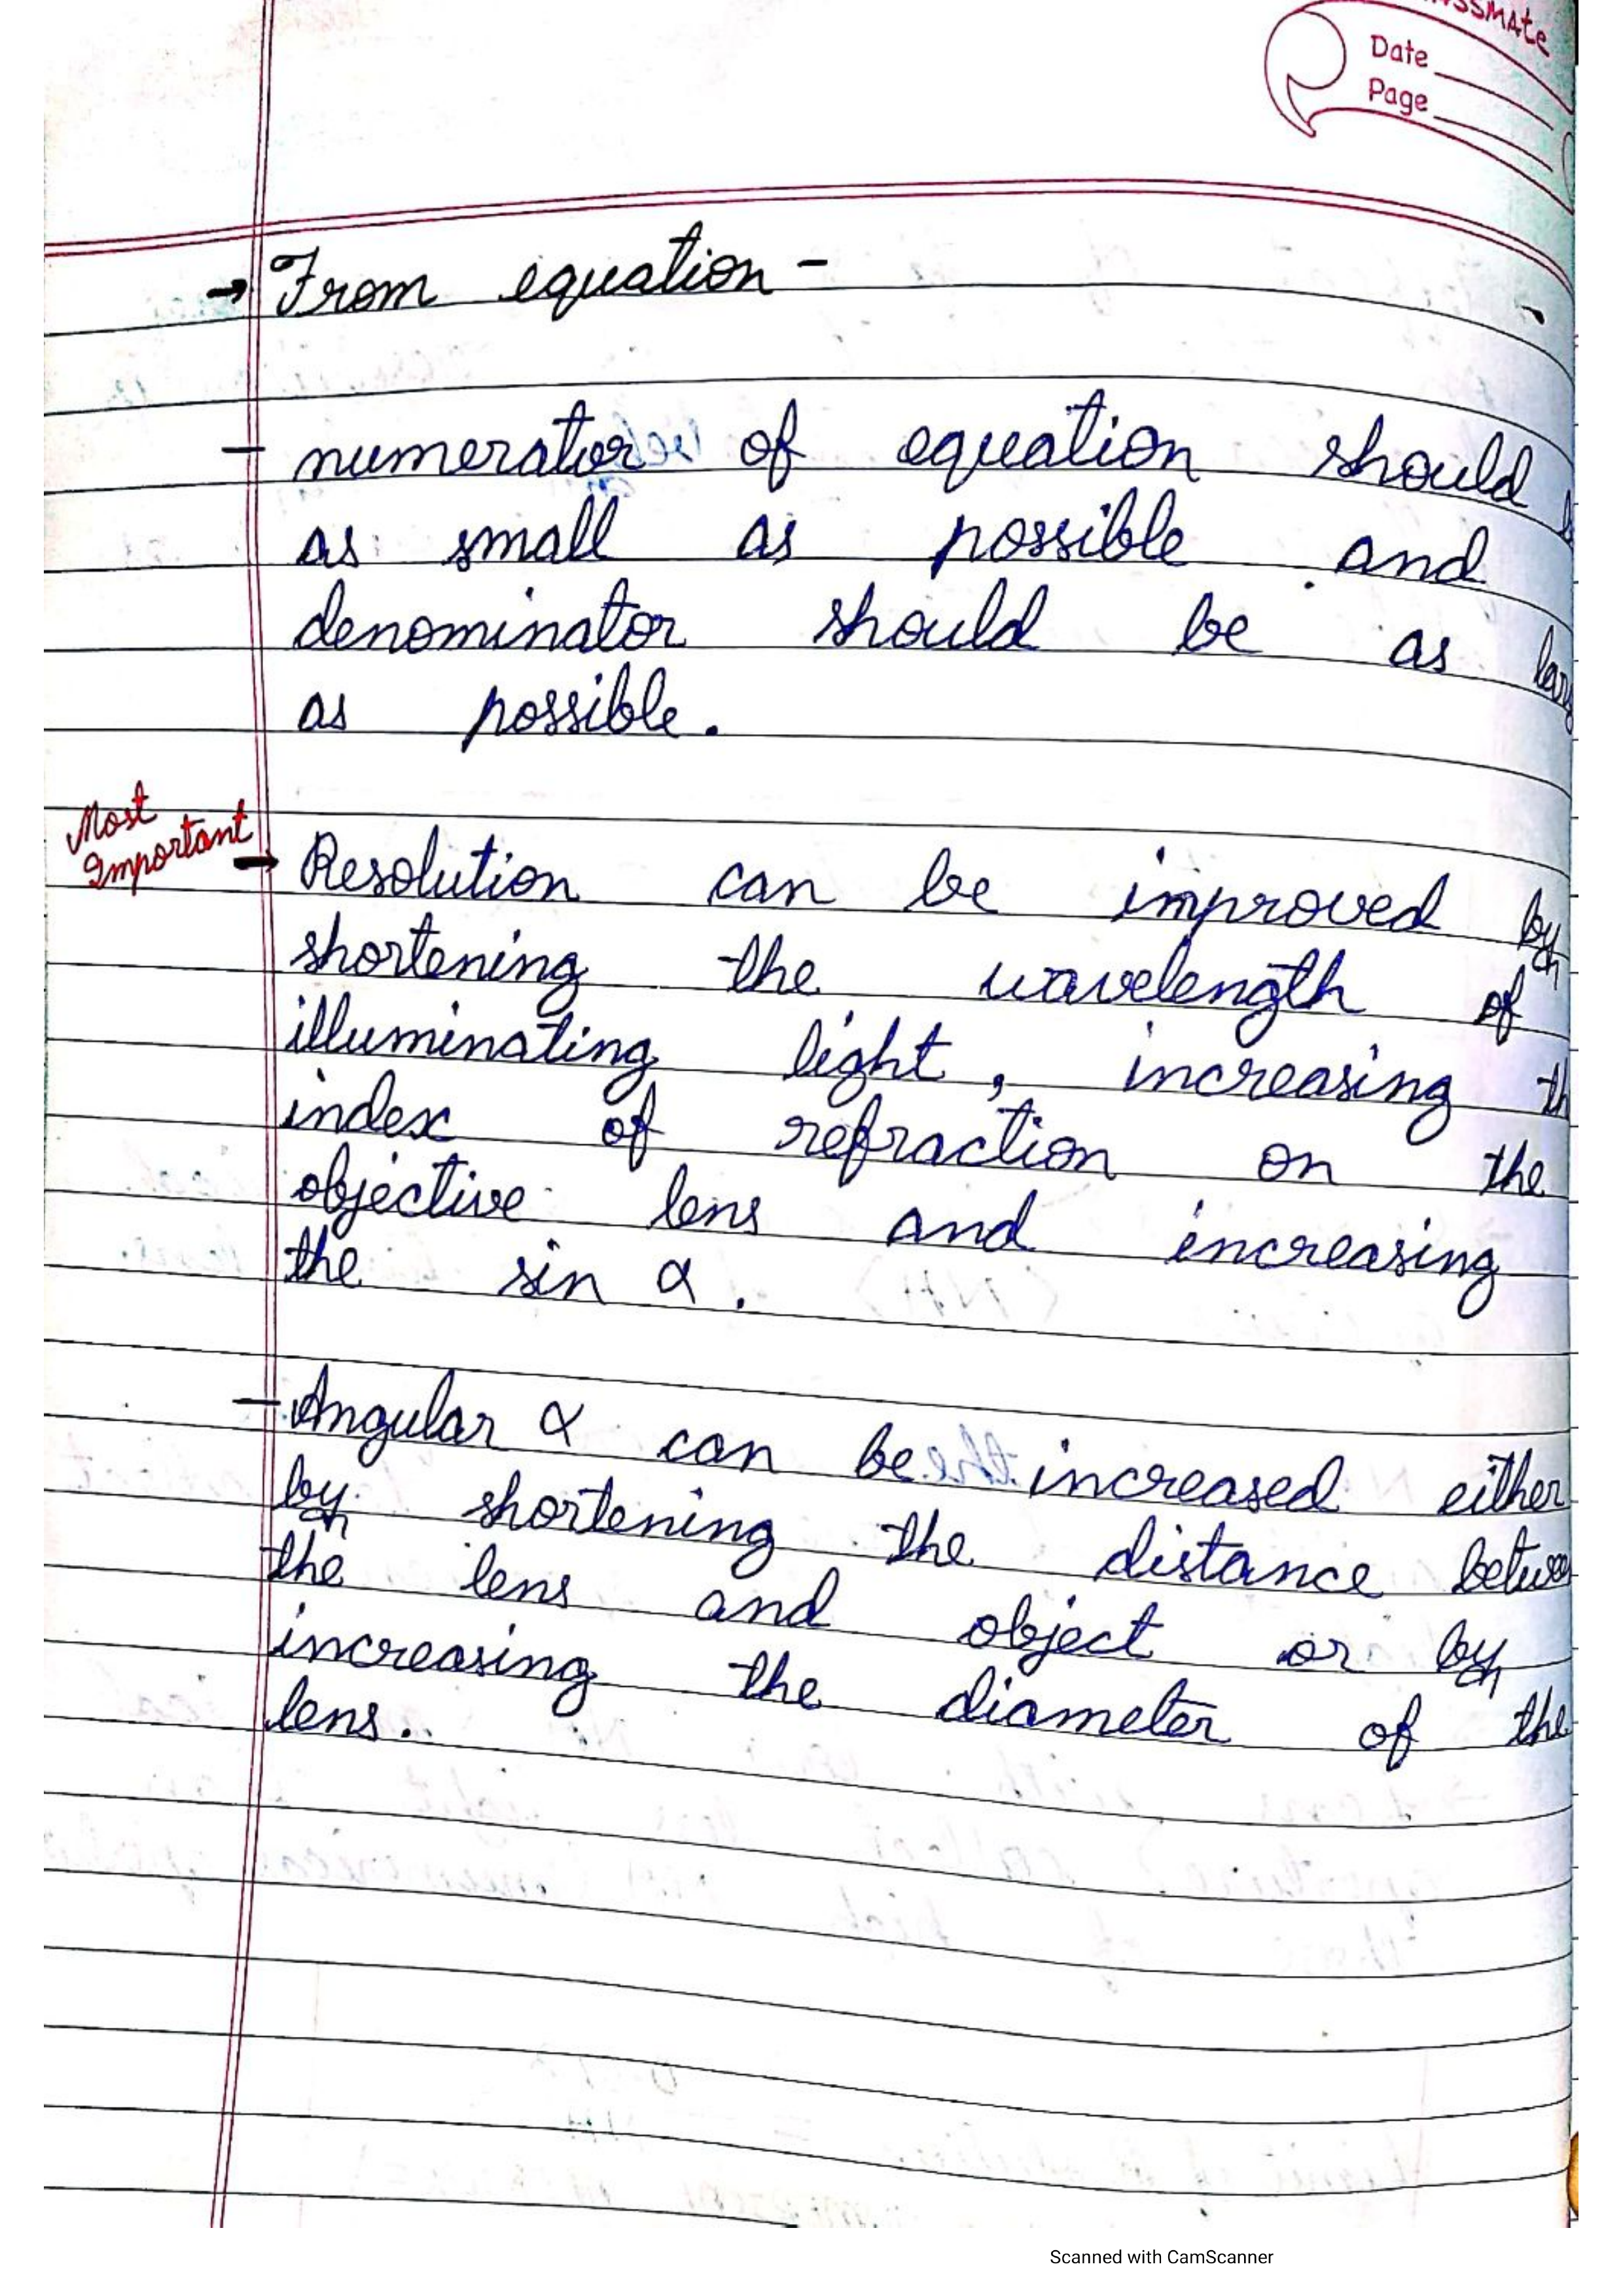 Date
Page
→ From equation -
- numerator of equation should
as small as possible and
denominator should be as
as possible.
Most
Important
→ Resolution can be improved by
shortening the wavelength of
illuminating light, increasing
index of refraction on the
objective lens and increasing
the sin α.
- Angular α can be increased either
by shortening the distance
the lens and object or by
increasing the diameter of the
lens.
Scanned with CamScanner